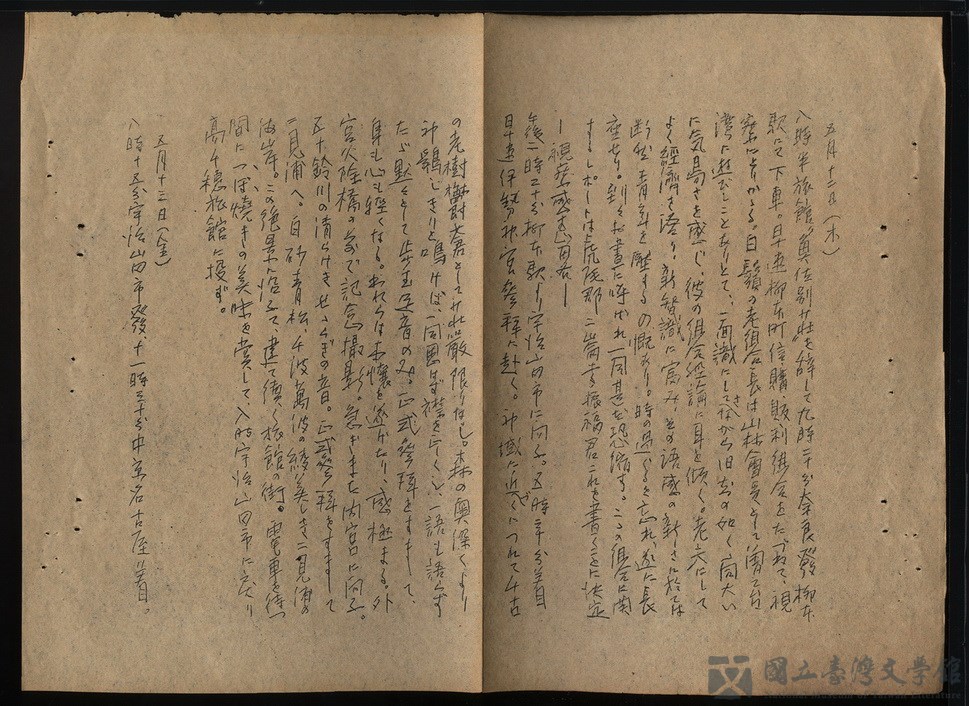 五月十二日（木）
八時半旅館"真佐別荘"を辞して九時二十分奈良發柳本
駅にて下車。早速柳本町信購販利組合をたづねて、視
察にとりかゝる。白鬚の老組合長は山林會員として曽て台
湾に遊びしことありとて、一面識にしさながら旧知の如く向大い
に気高さを感じ、彼の組合経論に耳を傾く。老夫にして
よく經濟を語り、新智識に富み、その語感の新しさに於ては
断然青年を壓するの慨あり。時の過ぐるを忘れ、遂に長
座せり。別々お晝に呼ばれ一同甚だ恐縮する。この組合に関
するレポートは虎尾郡二崙の振福君これを書くことに決定
―視察感想百有―
午後一時二十分柳本駅より宇治山田市に向ふ。五時三十分着
早速伊勢神宮参拝に赴く。神域に近くにつれて千古
の老樹欝蒼として荘厳限りなし。森の奥深くより
神鶏しきりと鳴けば、一同思はず襟を正しく、一語も語らず
たゞ黙々として歩む足音のみ。正式参拝をすまして、
身も心も軽くなる。われらは本懐を遂げたり、感極まる。外
宮火除橋の前で記念撮影。急ぎまた内宮に向ふ。
五十鈴川の清らけきせゝらぎの音。正式参拝をすまして
二見浦へ。白砂青松、千波萬波の綾美しき二見浦の
海岸。この絶景に沿ふて、建て續く旅館の街。電車を待つ
間に、つぼ焼きの美味を賞して、八時宇治山田市に戻り
高千穂旅館に投ず。
五月十三日（金）
八時十五分宇治山田市發、十一時三十分中京名古屋着。
國立臺灣文學館
National Museum of Taiwan Literature